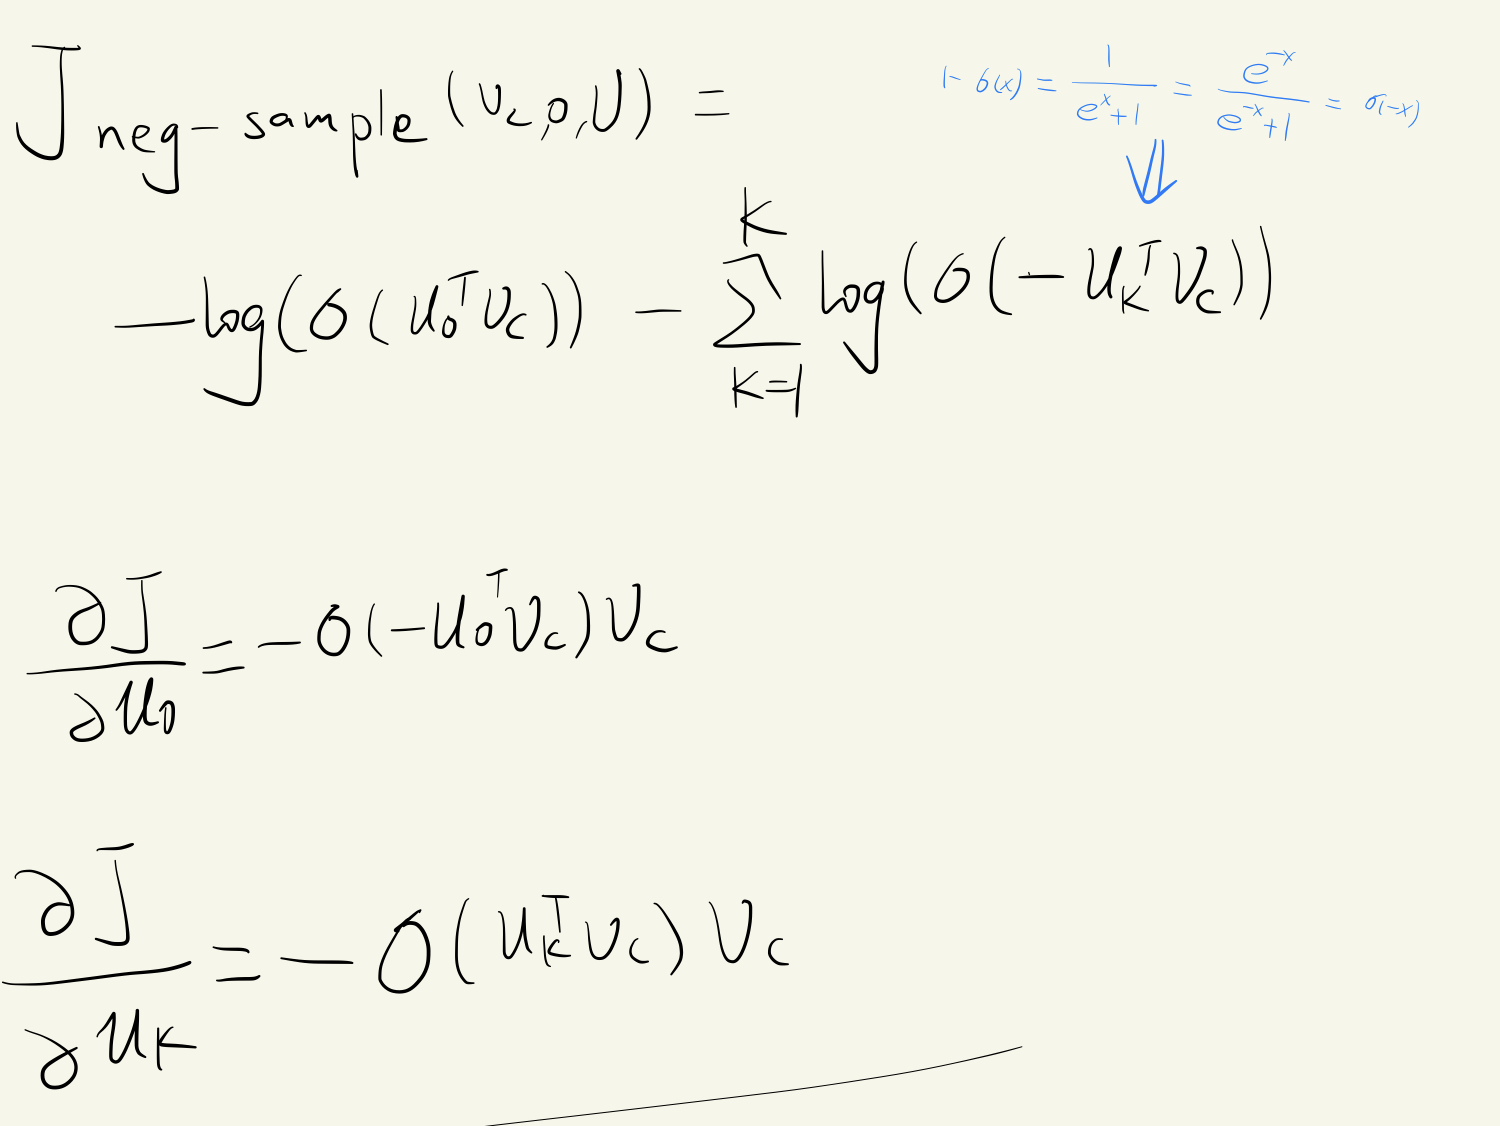 J neg-sample (v_c, o, U) =
1 - σ(x) = 1/(e^x + 1) = e^{-x}/(e^{-x} + 1) = σ(-x)
⇓
-log(σ(u_o^T v_c)) - Σ_{k=1}^{K} log(σ(-u_k^T v_c))
∂J/∂u_o = -σ(-u_o^T v_c) v_c
∂J/∂u_k = -σ(u_k^T v_c) v_c